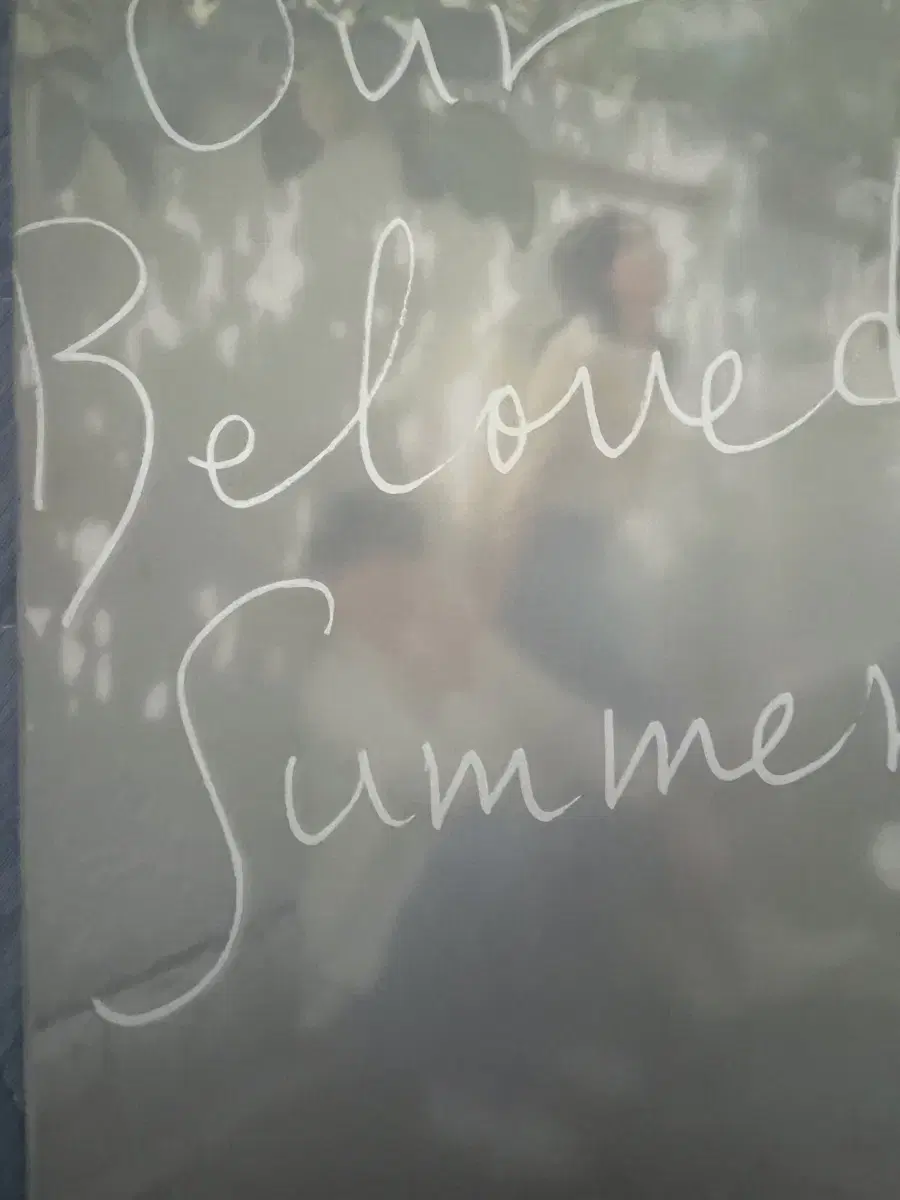 Our
Beloved
Summer